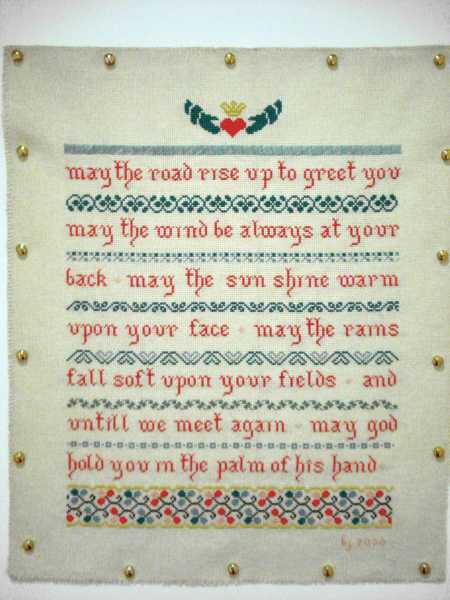 may the road rise up to greet you
may the wind be always at your
back · may the sun shine warm
upon your face · may the rains
fall soft upon your fields · and
untill we meet again · may god
hold you in the palm of his hand ·